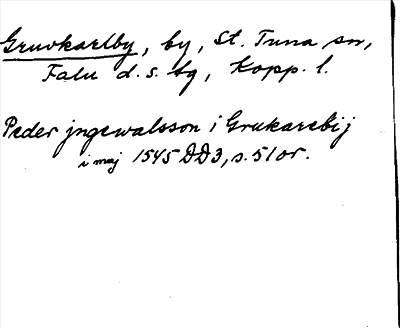 Gruvkarlby, by, St. Tuna sn,
Falu d.s. tg, Kopp. l.
Peder jngewalsson i Grukarebij
i maj 1545 DD3, s. 51or.